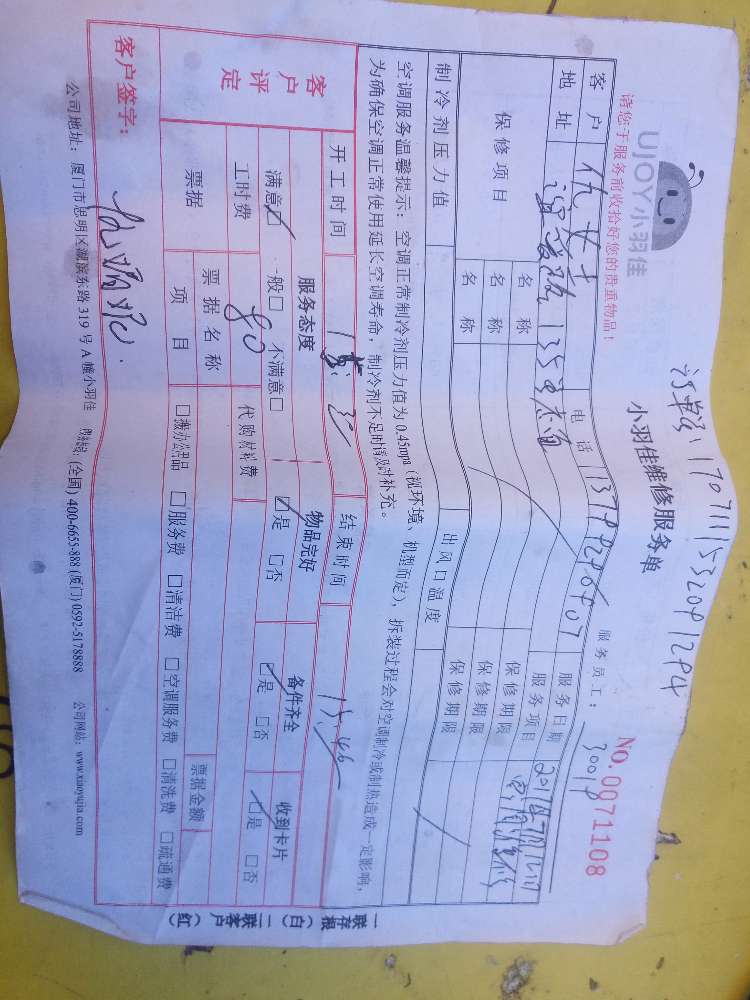 订单号：1707111532091294
UJOY小羽佳
小羽佳维修服务单
NO.0071108
请您于服务前收拾好您的贵重物品！
服务员工：
客户
女士
电话
服务日期
2017年7月11日
地址
服务项目
保修项目
名称
保修期限
名称
保修期限
名称
保修期限
制冷剂压力值
出风口温度
空调服务温馨提示：空调正常制冷剂压力值为0.45mpa（视环境、机型而定），拆装过程会对空调制冷或制热造成一定影响，
为确保空调正常使用延长空调寿命，制冷剂不足时请及时补充。
开工时间
结束时间
15:46
客户评定
服务态度
物品完好
备件齐全
收到卡片
满意☑ 一般□ 不满意□
☑是 □否
☑是 □否
☑是 □否
工时费
80
代购材料费
票据
票据名称
票据金额
项目
□服务费 □清洁费 □空调服务费 □清洗费 □疏通费
客户签字：
一联存根（白）二联客户（红）
公司地址：厦门市思明区湖滨东路319号A幢小羽佳
(全国) 400-6655-888 (厦门) 0592-5178888
公司网站：www.xiaoyujia.com